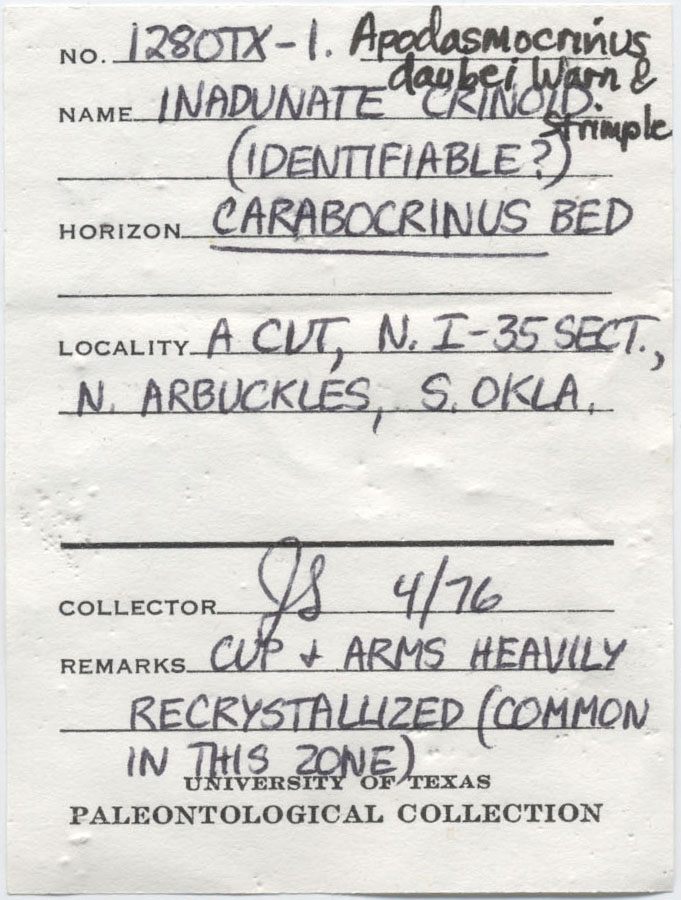 NO. 1280TX-1. Apodasmocrinus
daubei Warn &
Strimple
NAME INADUNATE CRINOID.
(IDENTIFIABLE?)
HORIZON CARABOCRINUS BED
LOCALITY A CUT, N. I-35 SECT.,
N. ARBUCKLES, S. OKLA.
COLLECTOR JS 4/76
REMARKS CUP + ARMS HEAVILY
RECRYSTALLIZED (COMMON
IN THIS ZONE)
UNIVERSITY OF TEXAS
PALEONTOLOGICAL COLLECTION